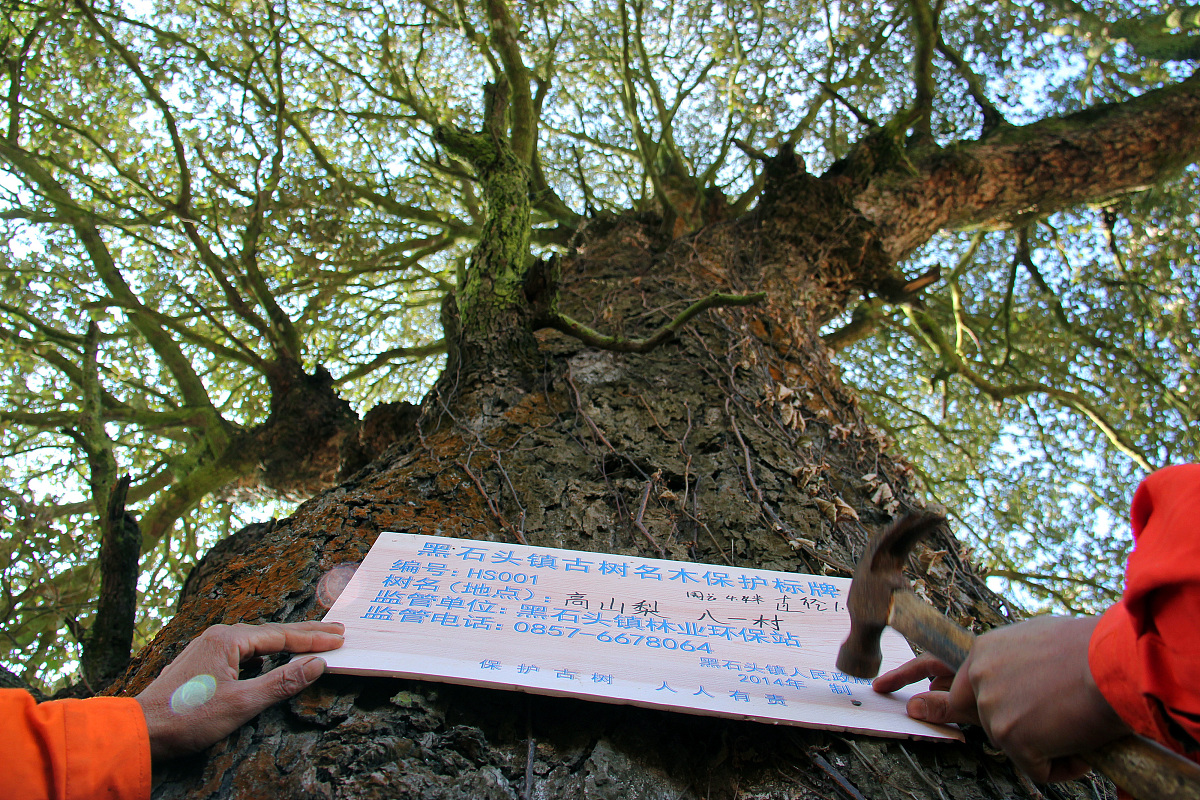 黑石头镇古树名木保护标牌
编号：HS001
周长4.4米 直径1.
树名(地点)：高山梨 八一村
监管单位：黑石头镇林业环保站
监管电话：0857-6678064
黑石头镇人民政府
2014年 制
保护古树 人人有责